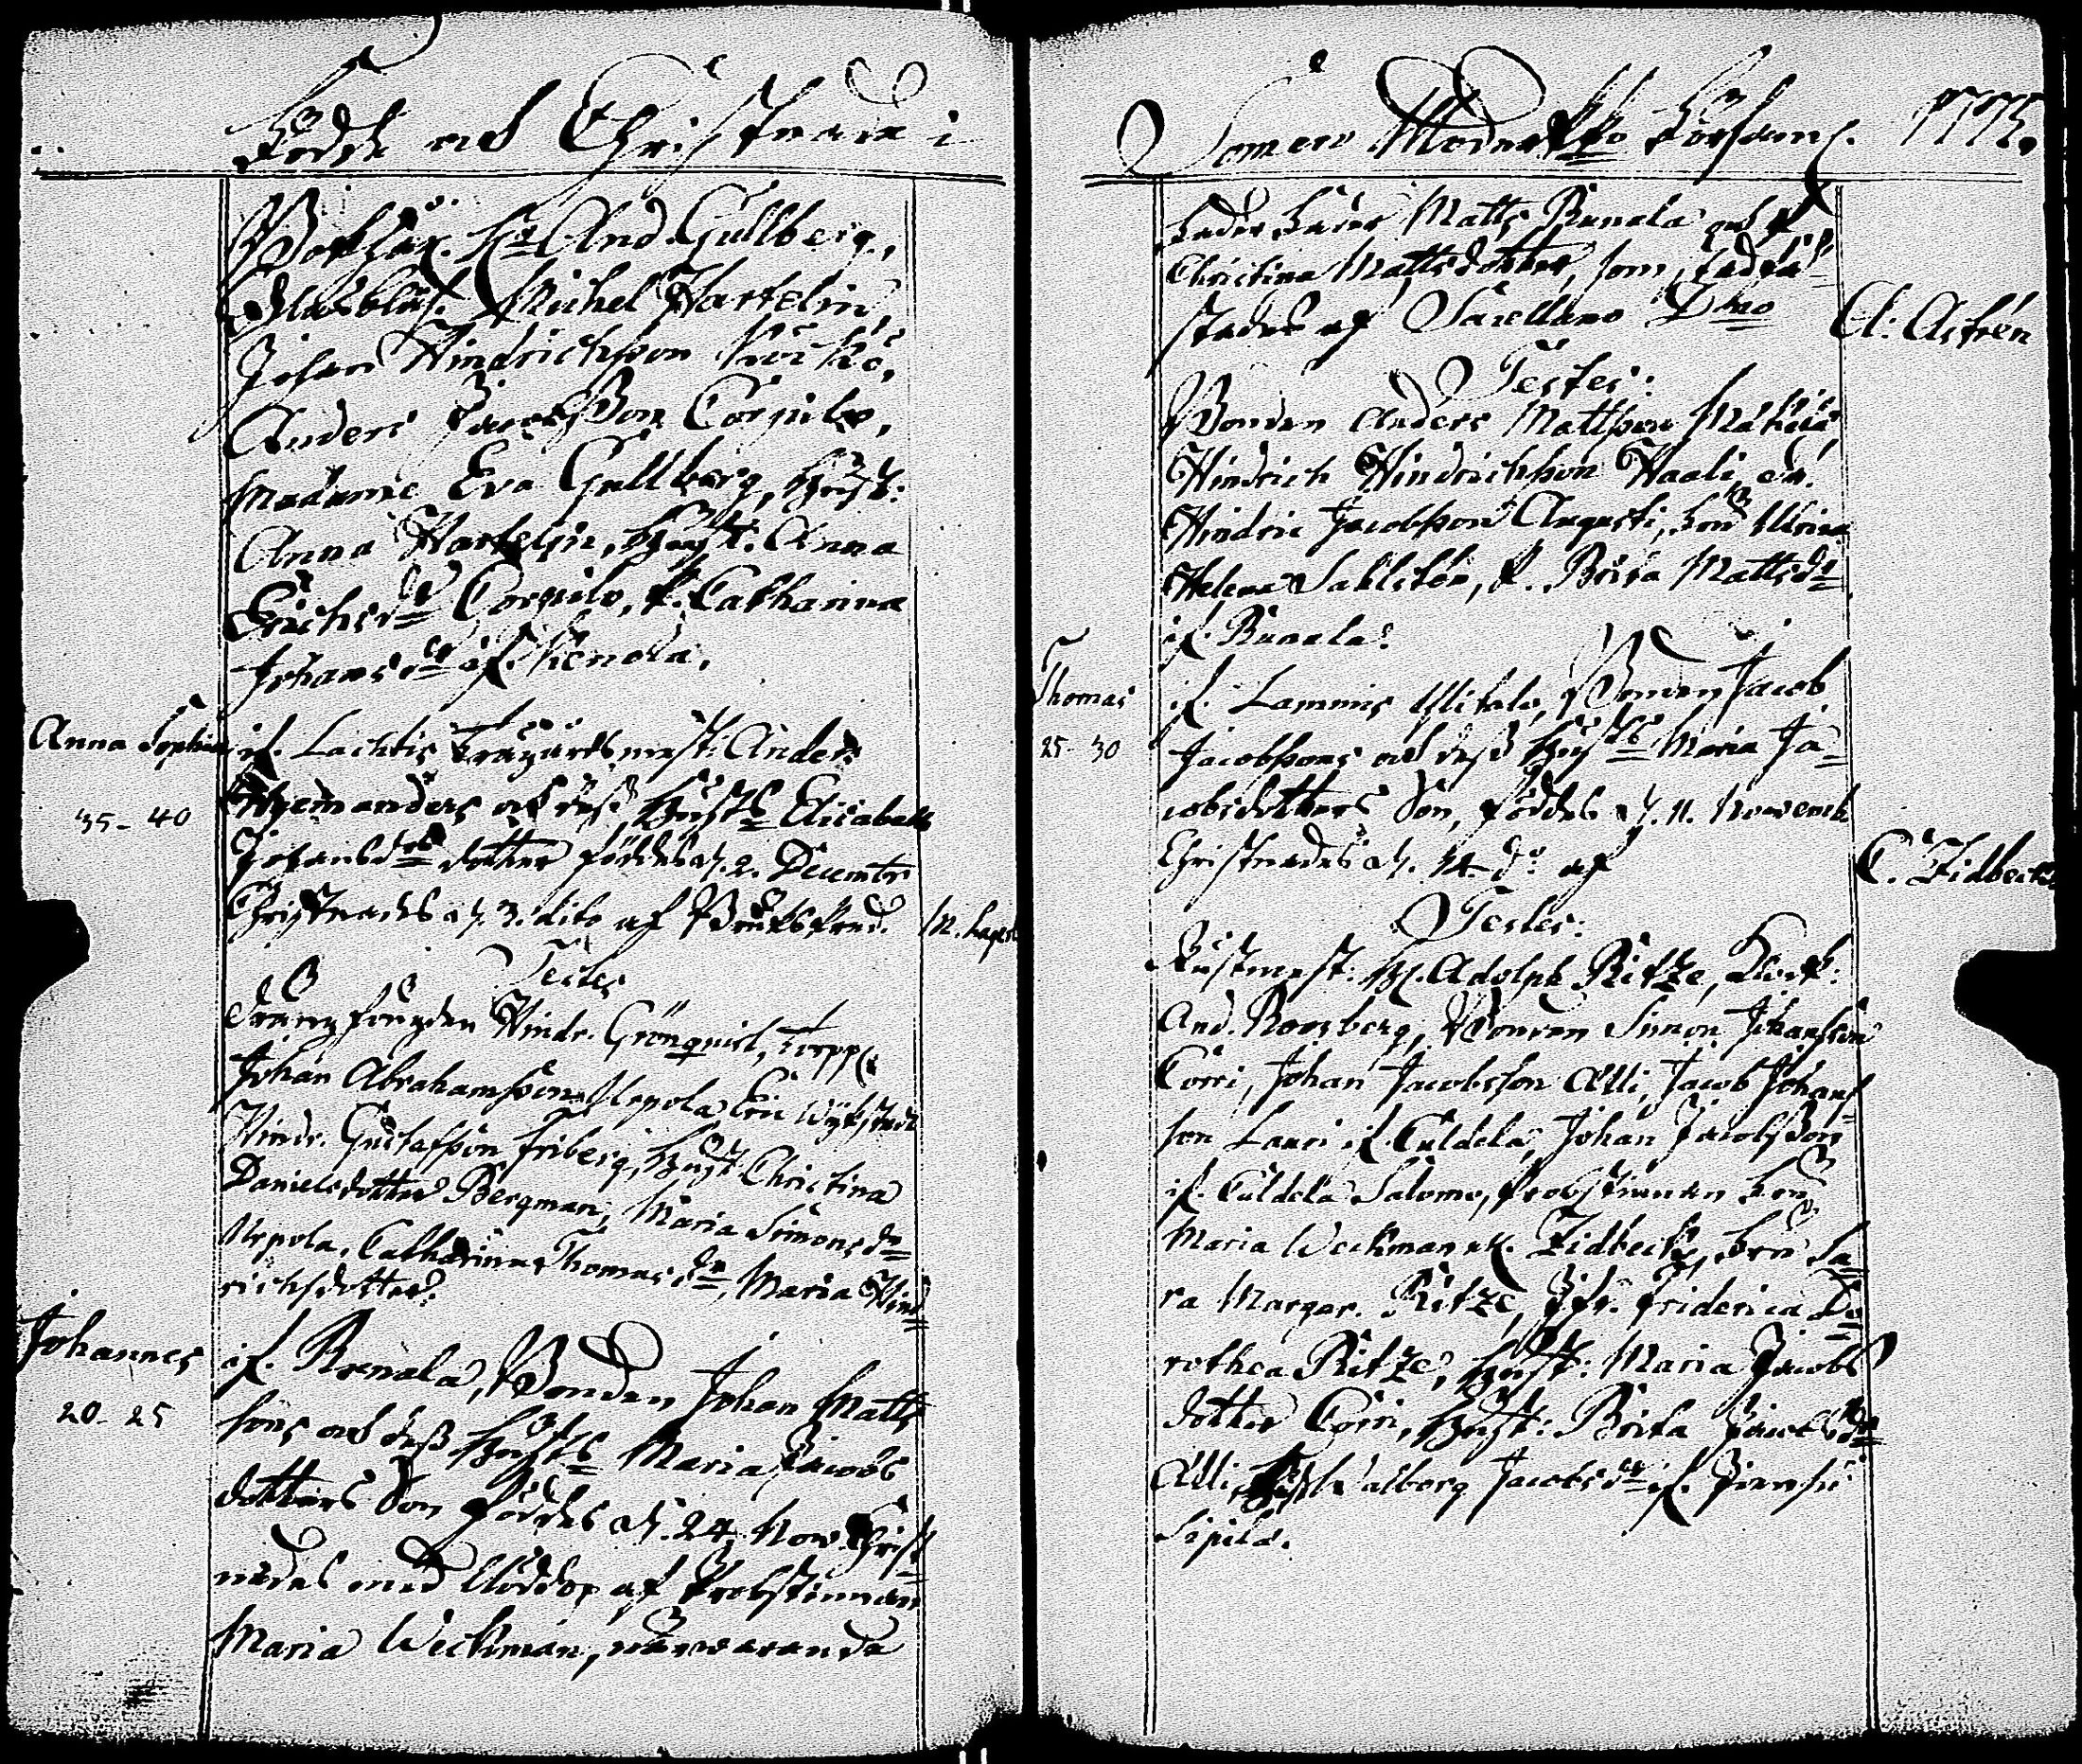 Födde och Christnade i
Bokhål. Hr And. Gullberg,
Glasblås. Michel Hartelin,
Johan Hindrichsson
Anders Jacobsson Torpilo,
Madame Eva Gullberg, hust:
Anna Hartelin, hust. Anna
Erichsdr Torpilo, P. Catharina
Johansdr if.
Anna Sophia
if. Lachtis Trägårdsmäst: Anders
35-40
och dess hustrs Elisabeth
Johansdrs dotter föddes d. 2. Decembr
Christnades d. 3. dito af
Testes
Hindr. Grönqvist, Torpp.
Johan Abrahamsson Uepola Eric
Hindr. Gustafsson Friberg, hust Christina
Danielsdotter Bergman, Maria Simonsdr
Uepola, Catharina Thomasdr, Maria Hind
richsdotter.
Johannes
if. Runala, Bonden Johan Matts
20-25
sons och dess hustrs Maria Jacobs
dotters Son föddes d. 24. Nov. Christ
nades med Nöddop af Probstinnan
Maria Weckman, närvarande
Somero Moderkko Församl. 1775.
Matts Runala och P
Christina Mattsdotter, som
stades af Sacellano Dmo
A: Astrén
Testes:
Bonden Anders Mattsson
Hindrich Hindrichsson Haali, dr.
Hindric Jacobsson Augusti, Fru Ulrica
Helena Sahlstén, P. Brita Mattsdr
if. Runala.
Thomas
if. Lammis Ylitalo, Bonden Jacob
25-30
Jacobssons och dess hustrs Maria Ja
cobsdotters Son, föddes d. 11. Novemb
Christnades d. 14 do af
C. Zidbeck
Testes:
Rustmäst: H. Adolph Ritze, Klock:
And. Roosberg, Bonden Simon Johansson
Cörri, Johan Jacobsson Alli, Jacob Johans
son Lauri if Culdela, Johan Jacobsson
if. Culdela Salomo, Probstinnan Fru
Maria Weckman, Zidbeck, Fru Sa
ra Margar. Ritze, Jfr. Friderica Do
rothea Ritze, hust: Maria Jacobs
dotter Cörri, hust: Brita Jacobsdr
Alli, Walborg Jacobsdr if.
Sipilä.